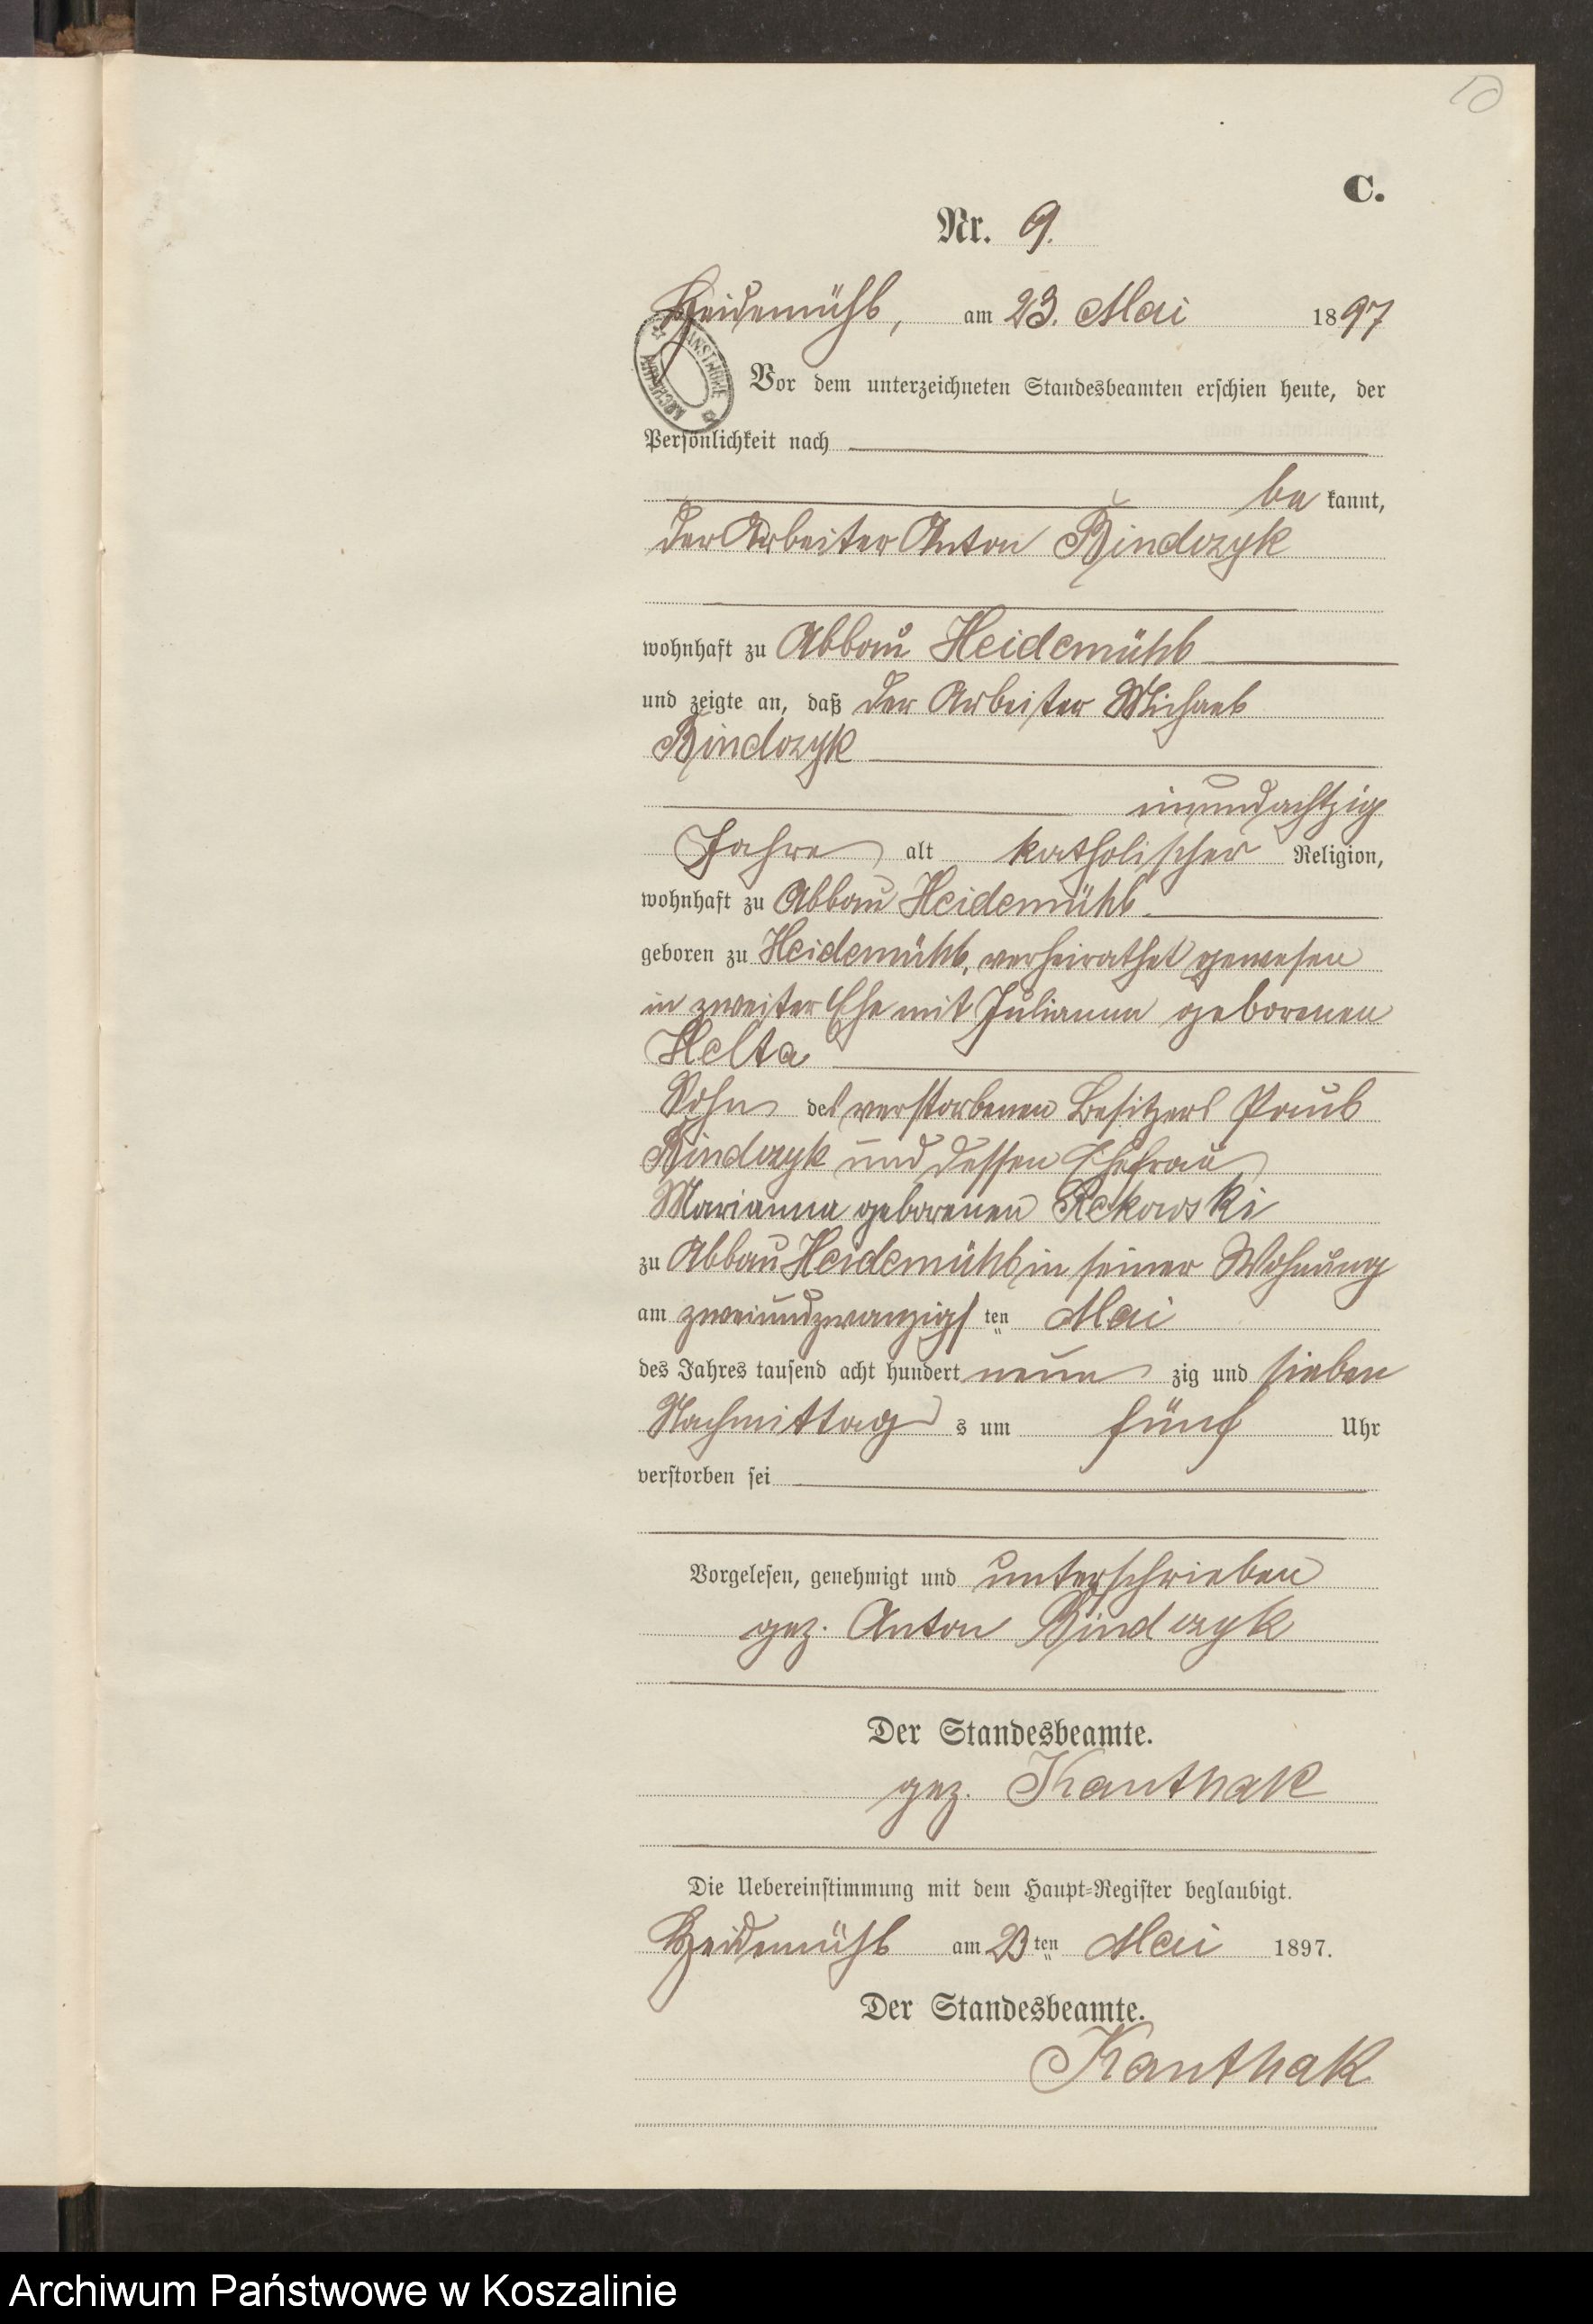 10
C.
Nr. 9.
Heidemühl, am 23. Mai 1897
Vor dem unterzeichneten Standesbeamten erschien heute, der
Persönlichkeit nach
be kannt,
der Arbeiter Anton Bindczyk
wohnhaft zu Abbau Heidemühl
und zeigte an, daß der Arbeiter Michael
Bindczyk
einundachtzig
Jahre alt katholischer Religion,
wohnhaft zu Abbau Heidemühl
geboren zu Heidemühl, verheirathet gewesen
in zweiter Ehe mit Julianna geborenen
Helta
Sohn des verstorbenen Besitzers Paul
Bindczyk und dessen Ehefrau
Marianna geborenen Rekowski
zu Abbau Heidemühl in seiner Wohnung
am zweiundzwanzigs ten Mai
des Jahres tausend acht hundert neun zig und sieben
Nachmittag s um fünf Uhr
verstorben sei
Vorgelesen, genehmigt und unterschrieben
gez. Anton Bindczyk
Der Standesbeamte.
gez. Kanthak
Die Uebereinstimmung mit dem Haupt-Register beglaubigt.
Heidemühl am 23 ten Mai 1897.
Der Standesbeamte.
Kanthak
Archiwum Państwowe w Koszalinie